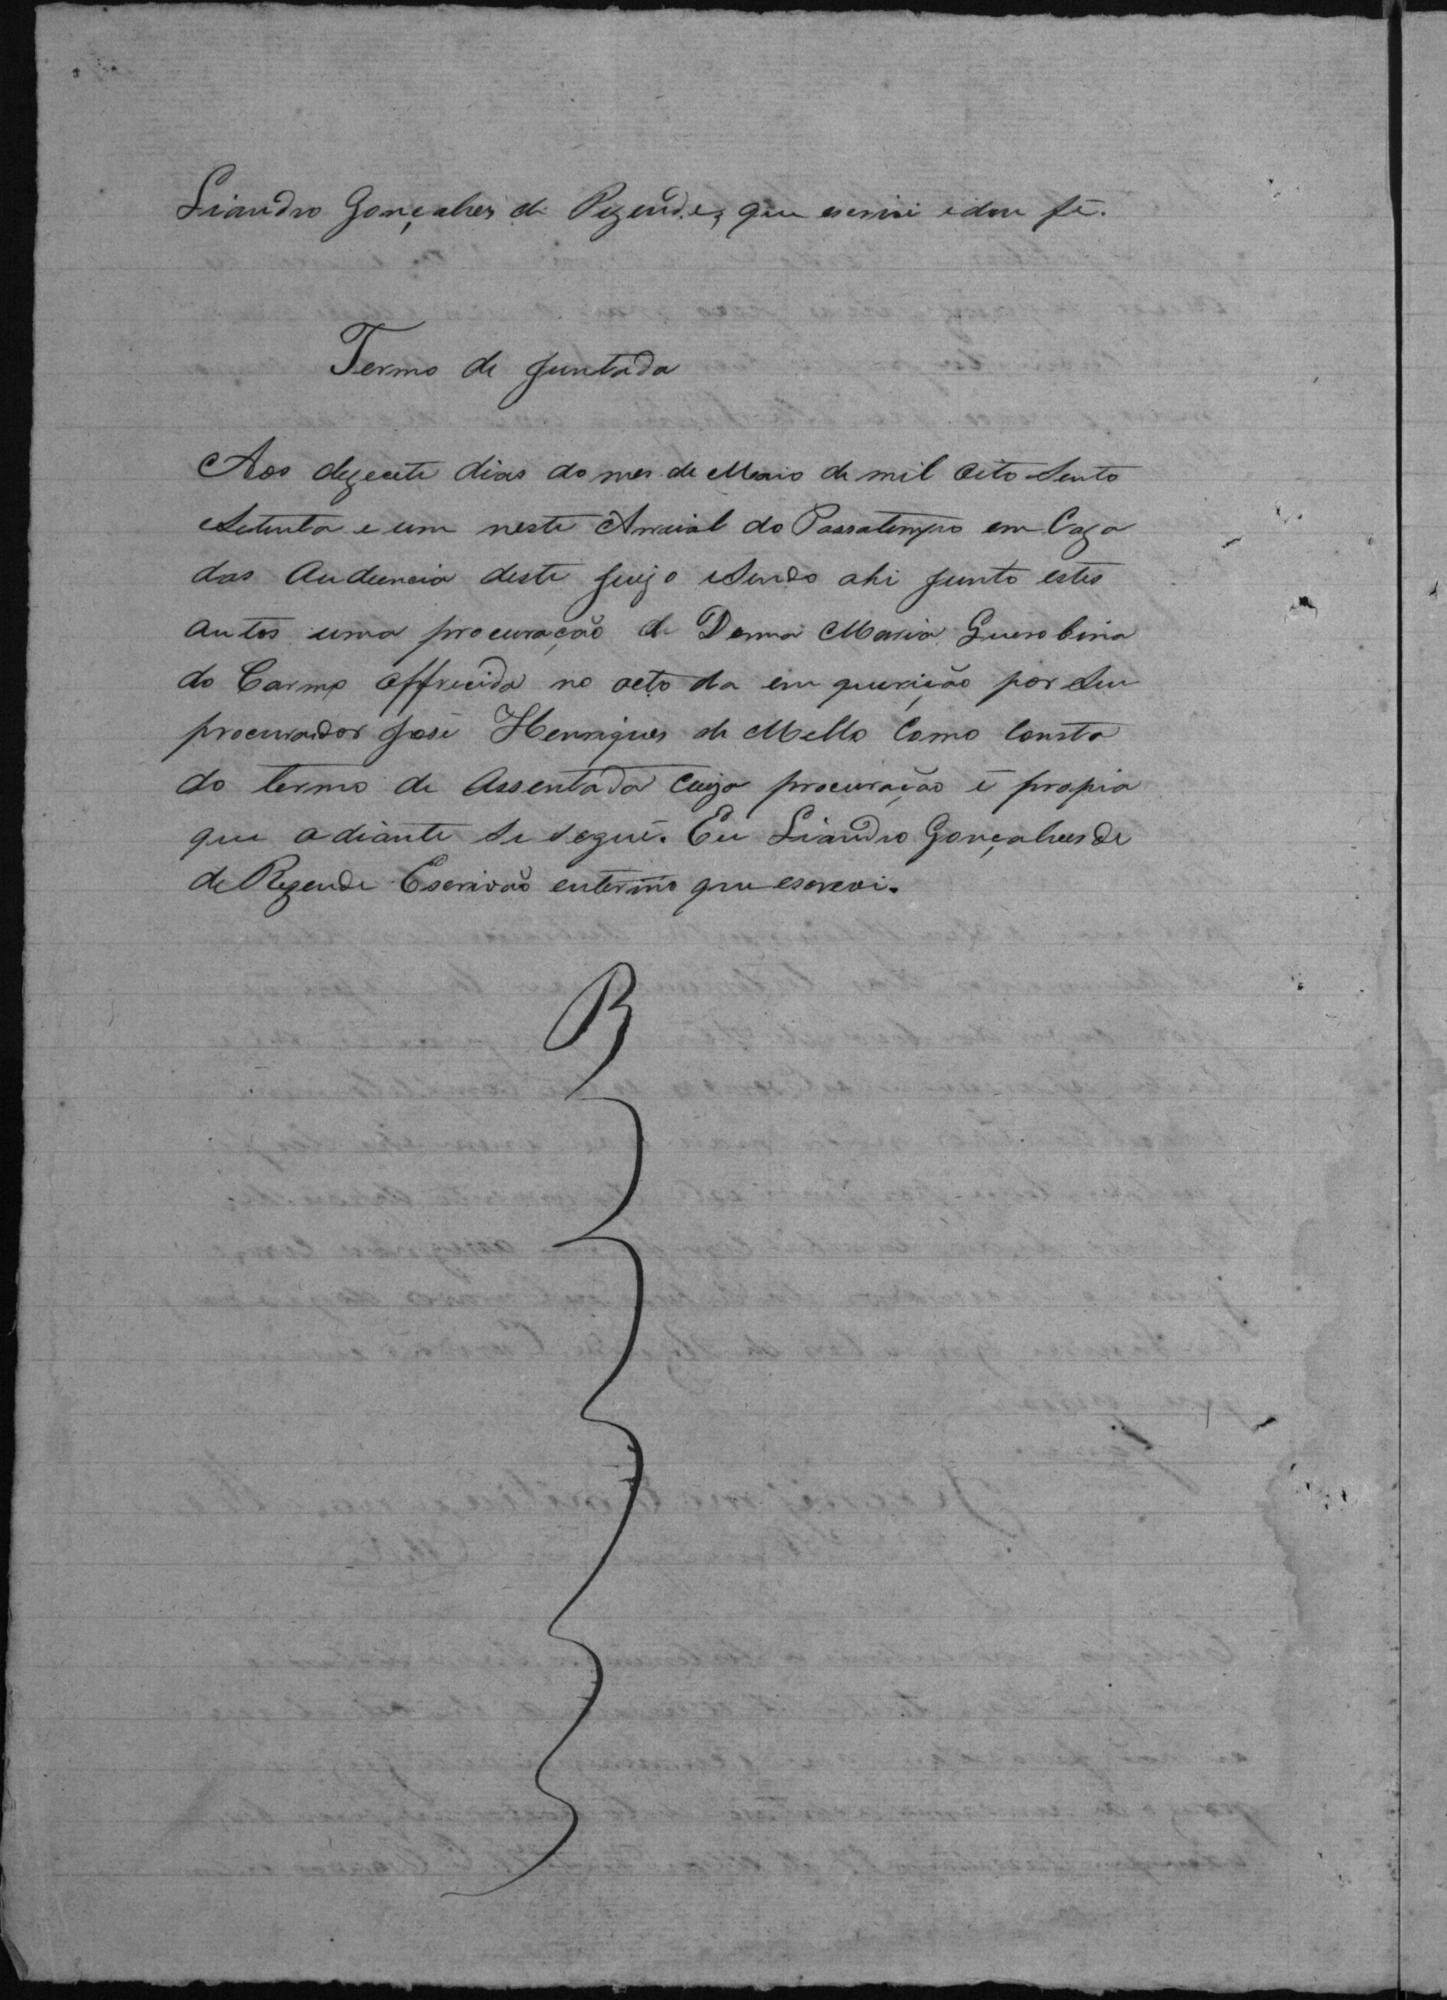 Liandro Gonçalves de Rezende, que escrivi e dou fé.
Termo de Juntada
Aos dezecete dias do mes de Maio de mil oito Sento
e Setenta e um neste Arraial do Passatempo em Caza
das Audiencia deste Juizo e Sendo ahi junto estes
autos uma procuração de Donna Maria
do Carmo offrecida no acto da em quirição por Seu
procurador José Henriques de Mello Como Consta
do termo de Assentada Cuija procuração é propia
que adiante Se segue. Eu Liandro Gonçalves de
de Rezende Escrivão enterino que escrevi.
R